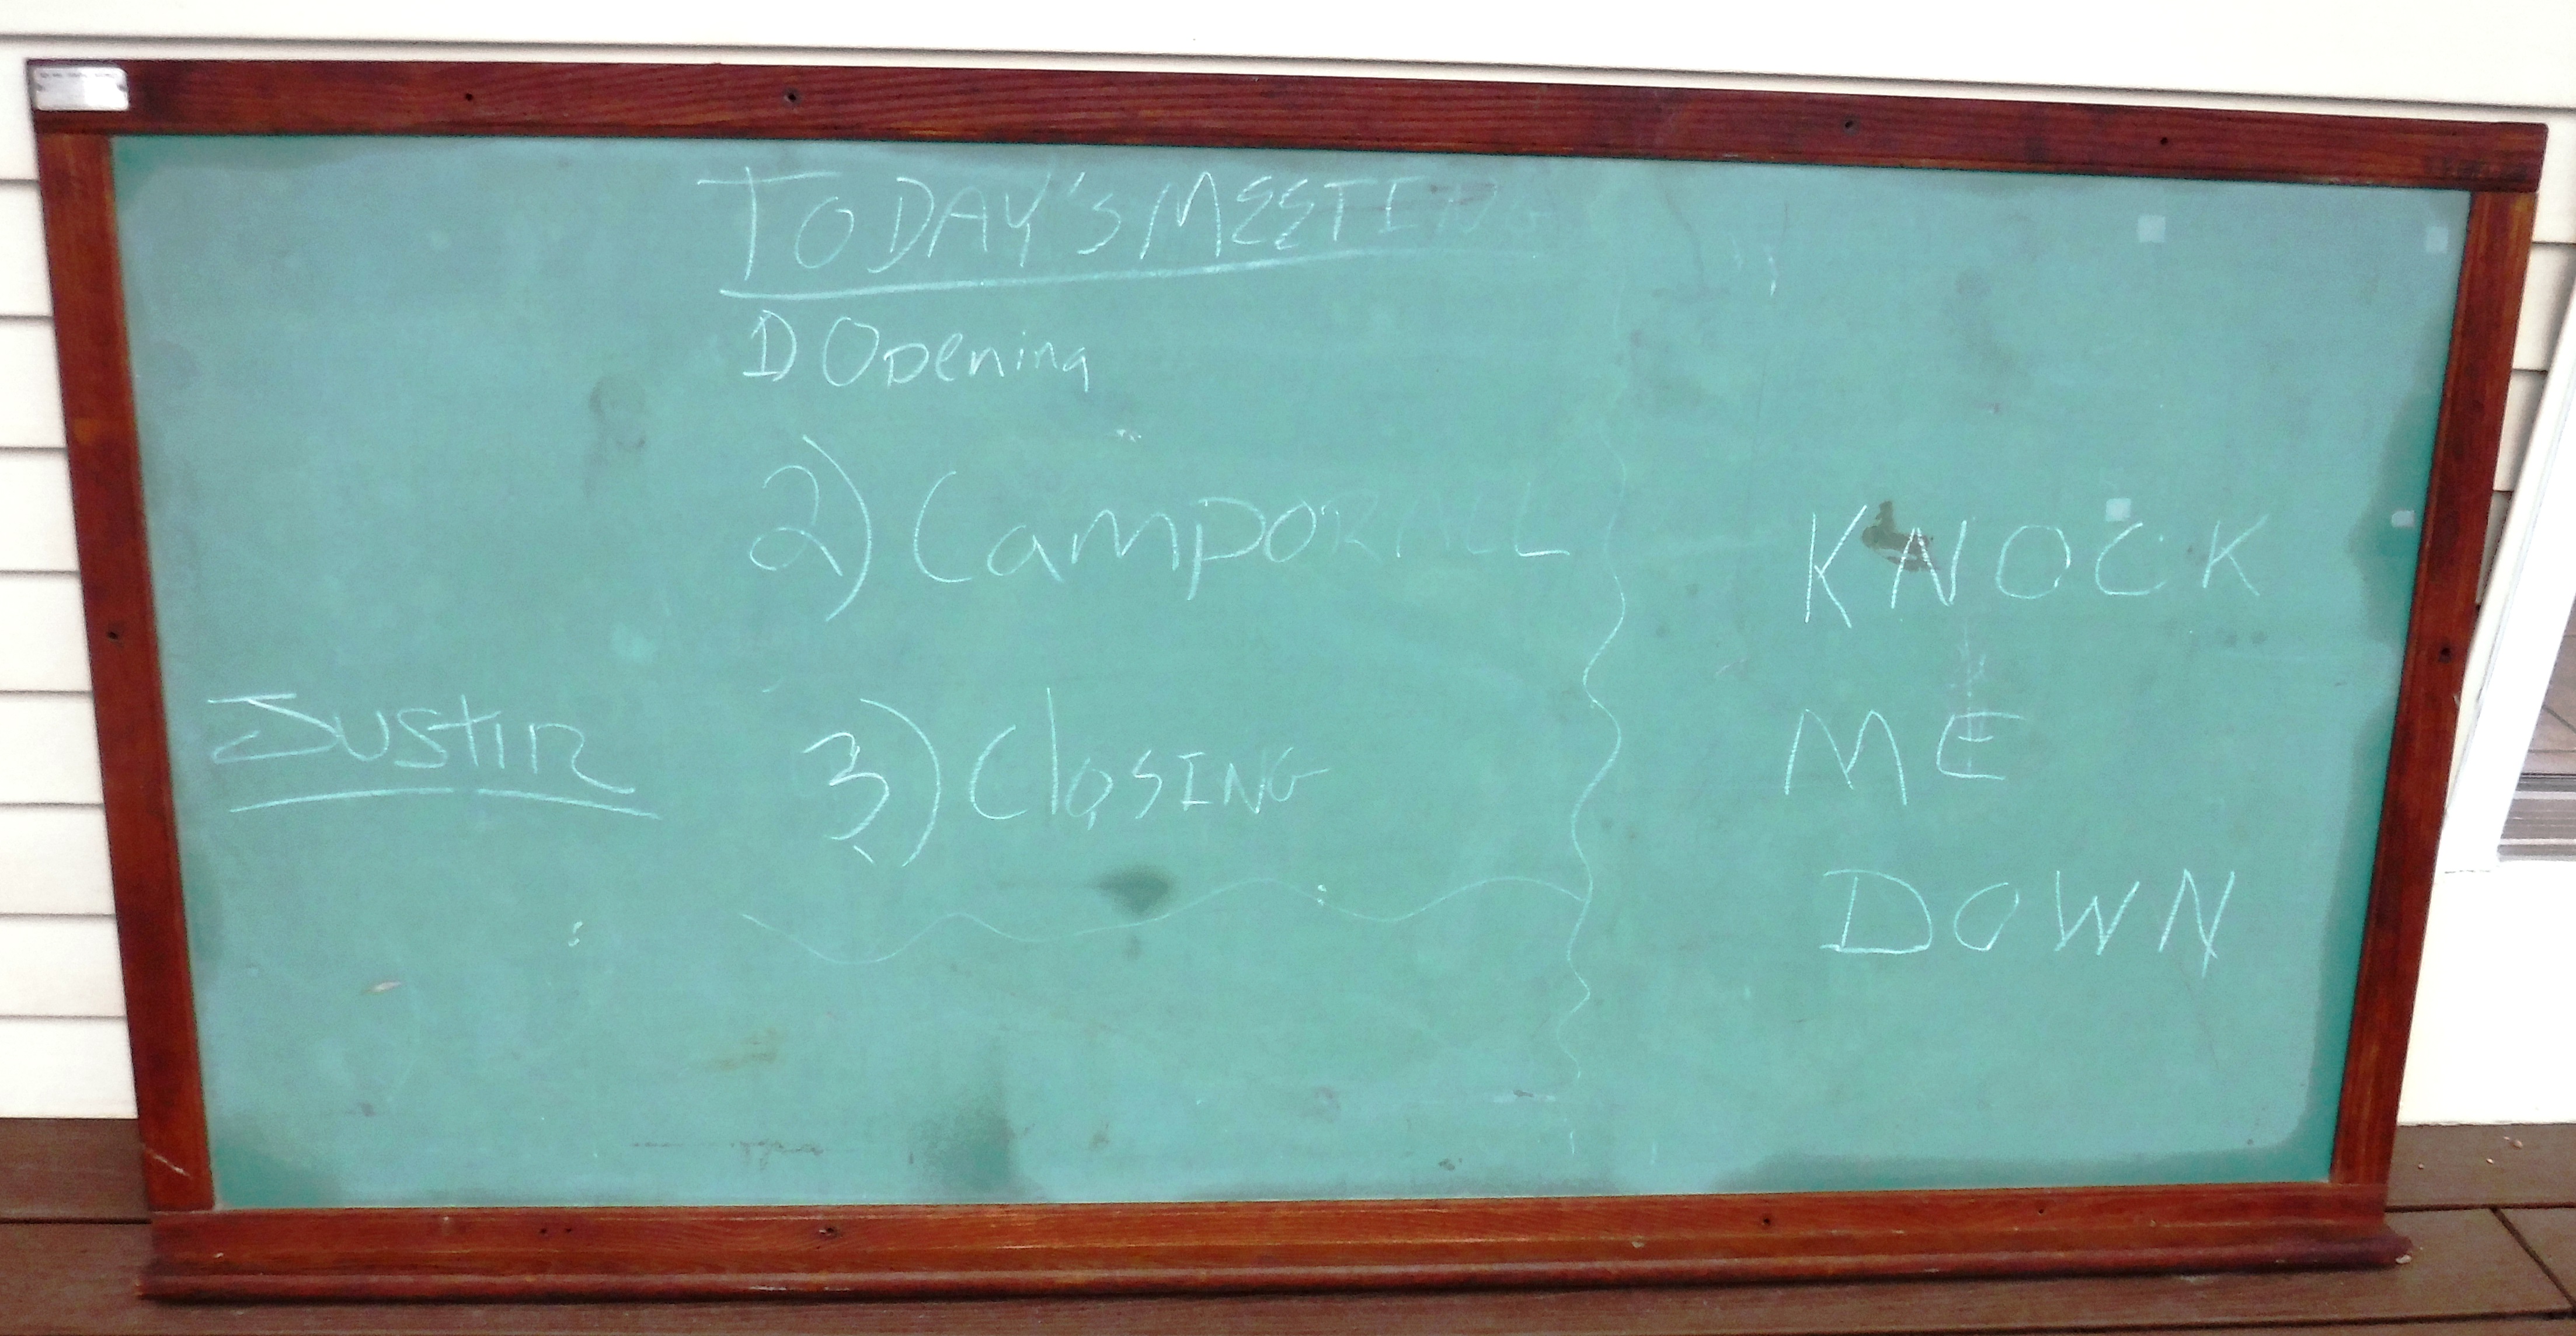 TODAY'S MEETING
1) Opening
2) Camporall
3) Closing
Justin
KNOCK
ME
DOWN